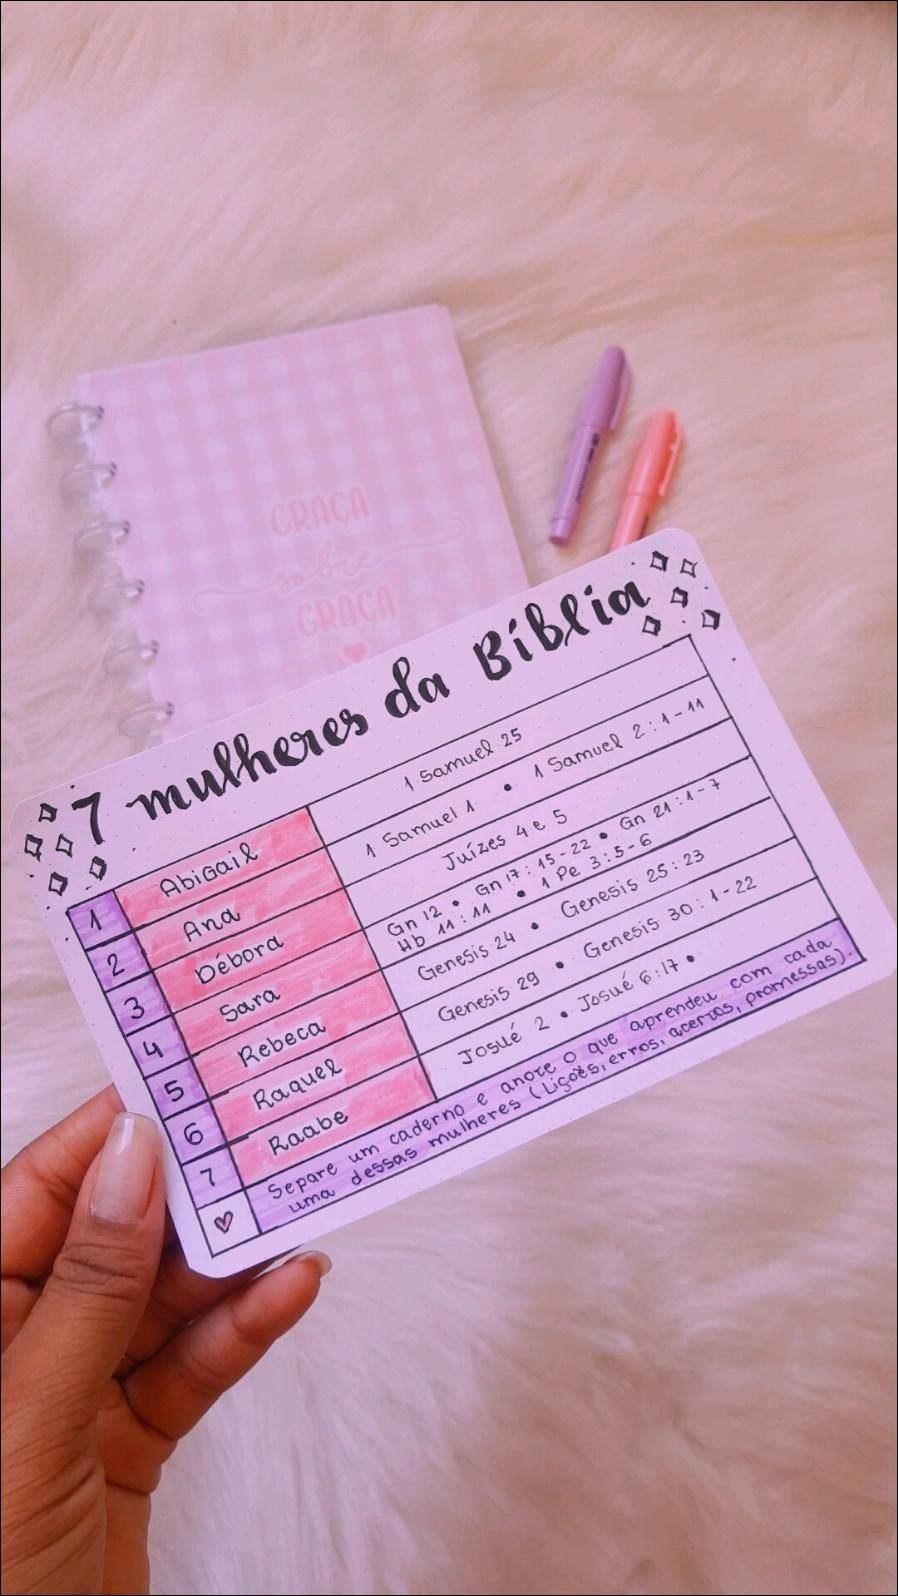 GRAÇA
sobre
GRAÇA
7 mulheres da Bíblia
1 Abigail 1 Samuel 25
2 Ana 1 Samuel 1 • 1 Samuel 2:1-11
3 Débora Juízes 4 e 5
4 Sara Gn 12 • Gn 17:15-22 • Gn 21:1-7
Hb 11:11 • 1 Pe 3:5-6
5 Rebeca Genesis 24 • Genesis 25:23
6 Raquel Genesis 29 • Genesis 30:1-22
7 Raabe Josué 2 • Josué 6:17 •
Separe um caderno e anote o que aprendeu com cada
uma dessas mulheres (Lições, erros, acertos, promessas).